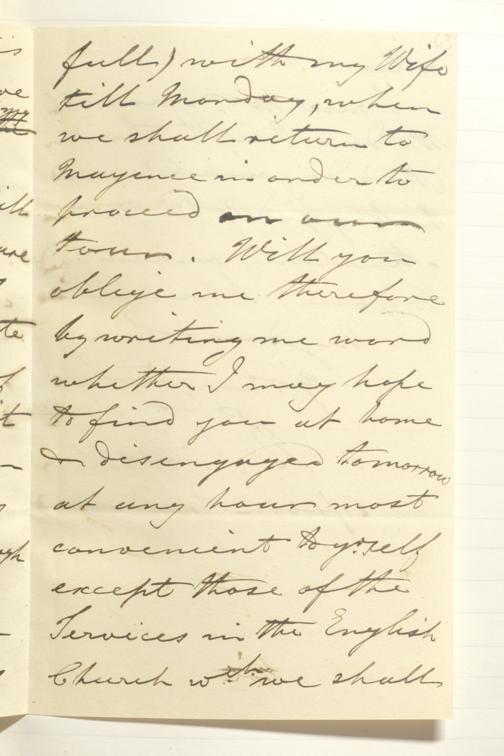 full) with my Wife
till Monday, when
we shall return to
Mayence in order to
proceed on our
tour. Will you
oblige me therefore
by writing me word
whether I may hope
to find you at home
& disengaged tomorrow
at any hour most
convenient to yrself
except those of the
Services in the English
Church wh we shall